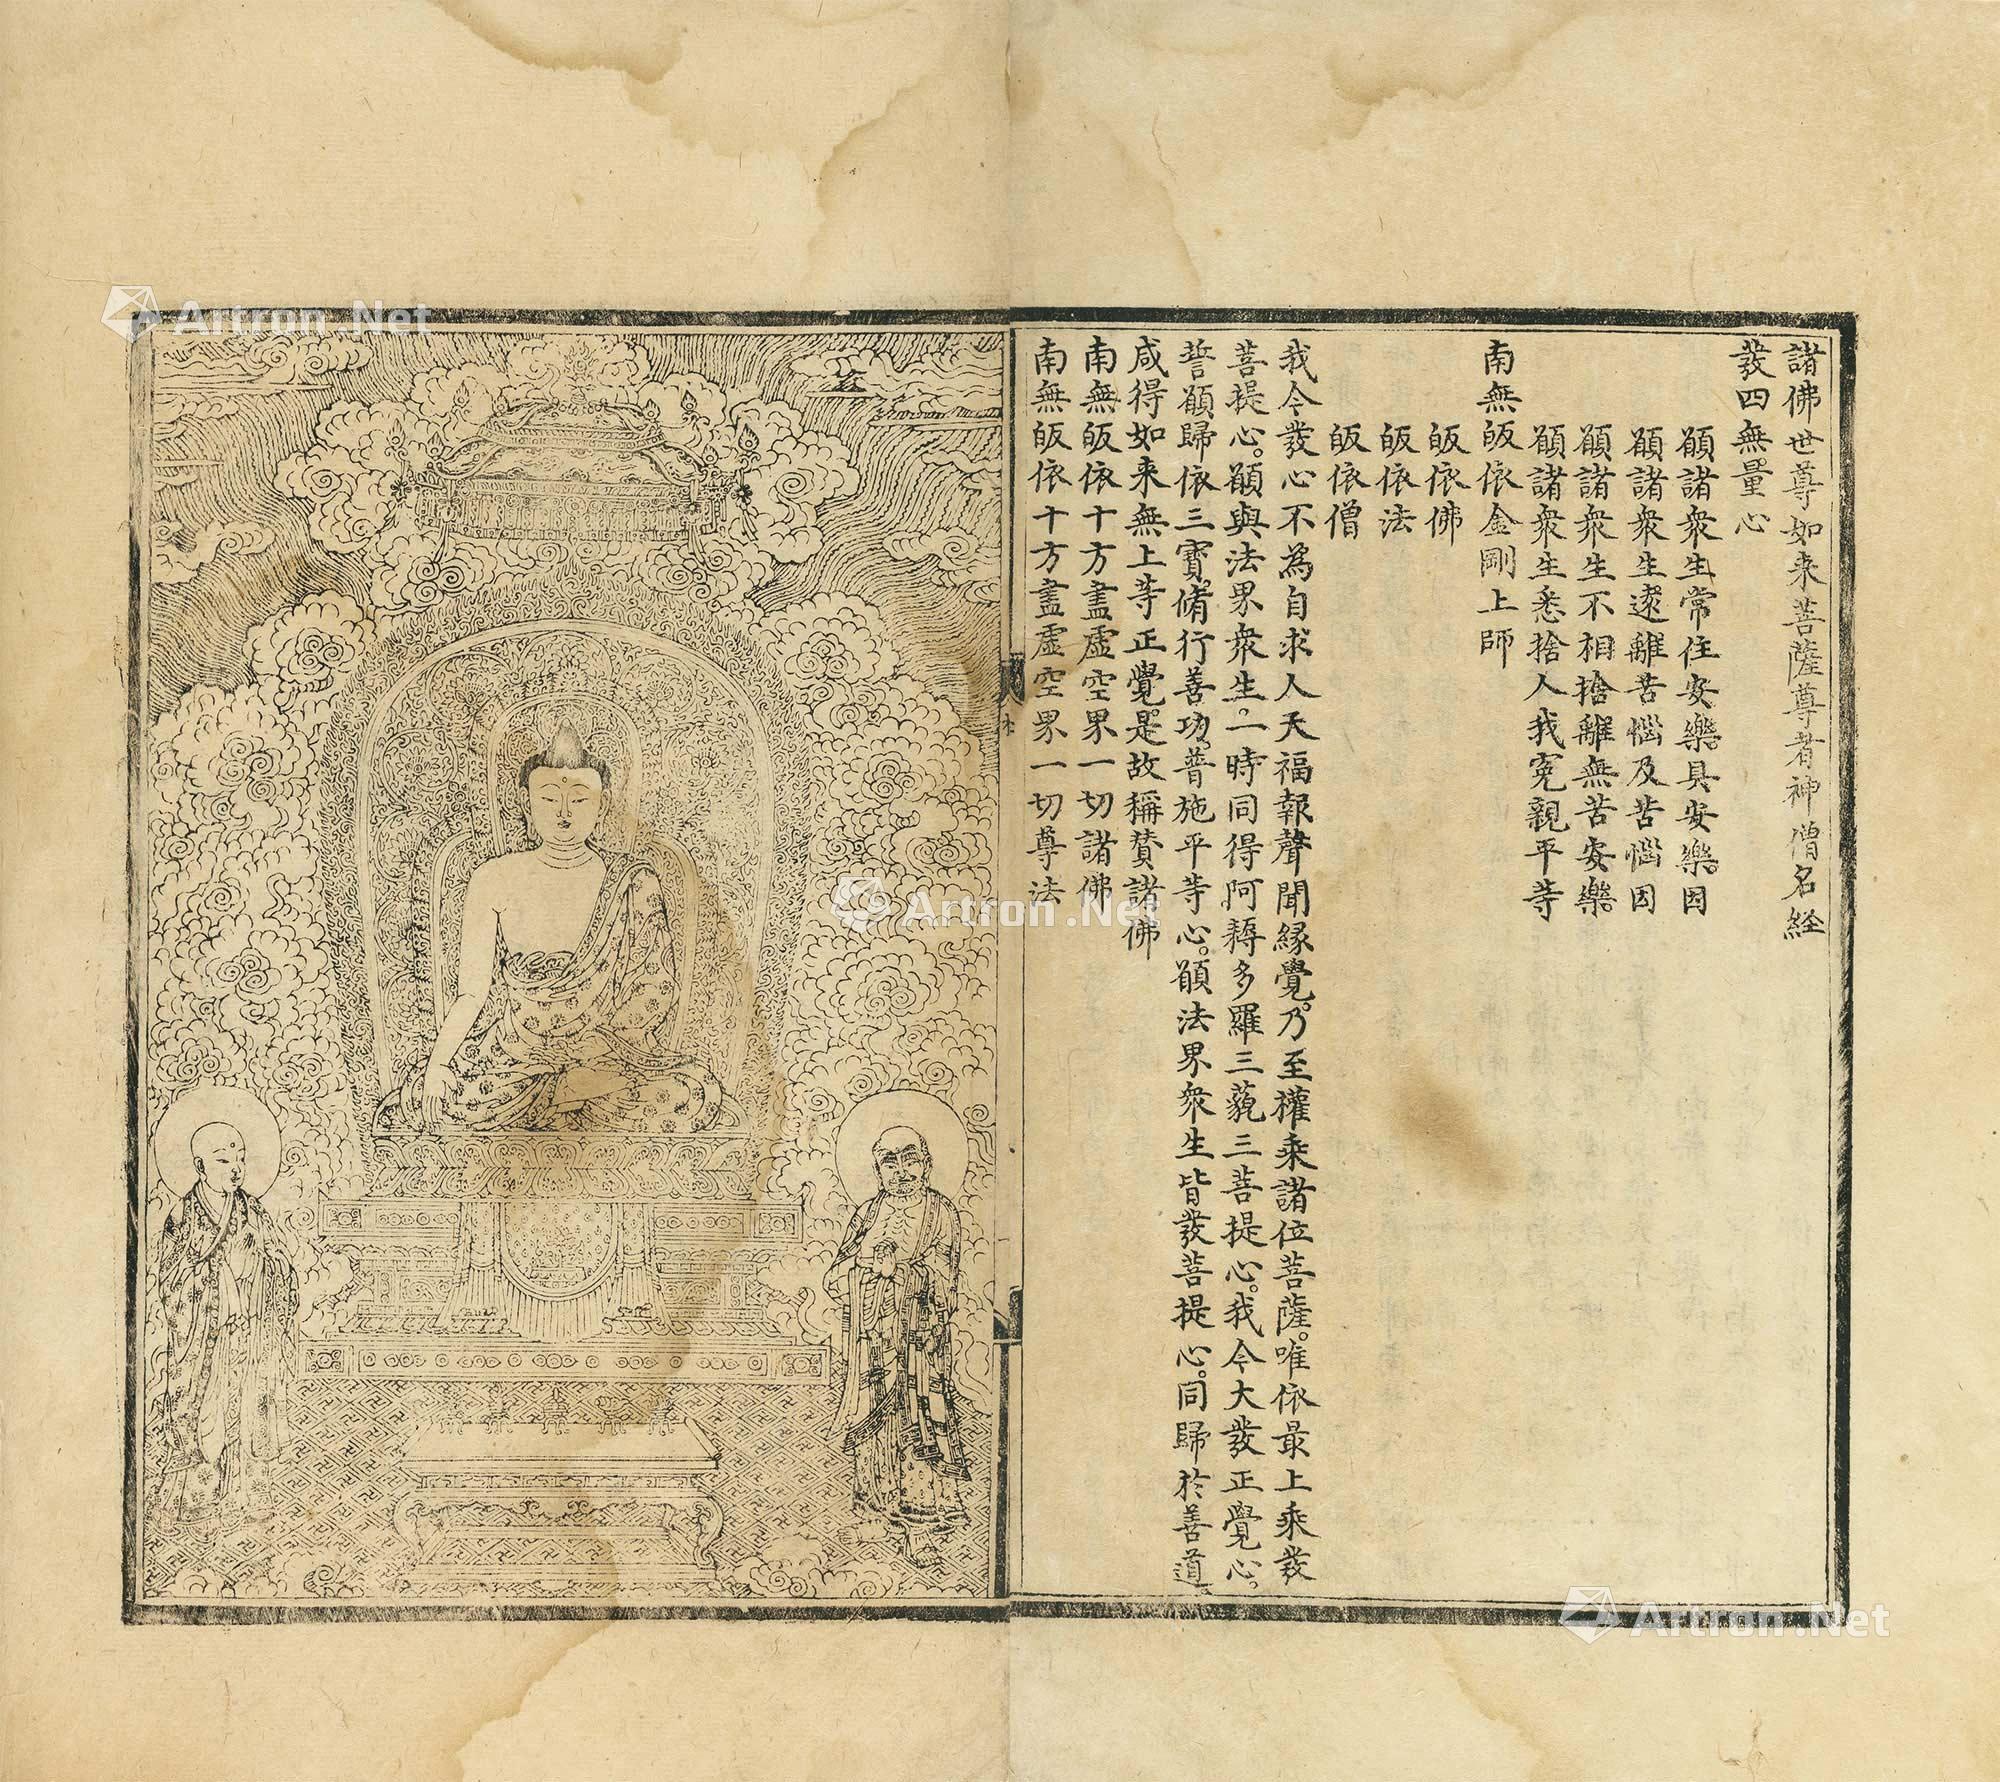 諸佛世尊如来菩薩尊者神僧名経
發四無量心
願諸衆生常住安樂。具安樂。因
願諸衆生遠離苦惱及苦惱因
願諸衆生不相捨離無苦安樂。
願諸衆生悉捨人我寃親平等
南無皈依金剛上師
皈依佛
皈依法
皈依僧
我今發心不為自求人天福報聲聞緣覺。乃至權乘諸位菩薩。唯依最上乘發
菩提心。願與法界衆生。一時同得阿耨多羅三藐三菩提心。我今大發正覺心。
誓願歸依三寶。脩行善功。普施平等心。願法界衆生皆發菩提心。同歸於善道。
咸得如来無上等正覺。是故稱賛諸佛
南無皈依十方盡虛空界一切諸佛
南無皈依十方盡虛空界一切尊法
Artron.Net
Artron.Net
Artron.Net